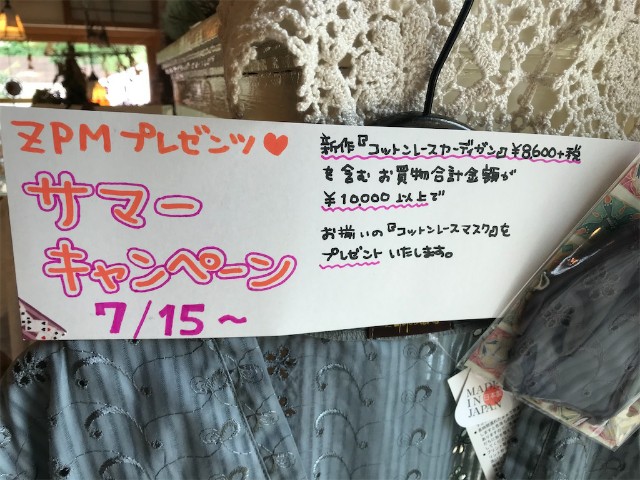 ZPMプレゼンツ♥
サマー
キャンペーン
7/15～
新作『コットンレースカーディガン』¥8,600+税
を含むお買物合計金額が
¥10,000以上で
お揃いの『コットンレースマスク』を
プレゼントいたします。
MADE
IN
JAPAN